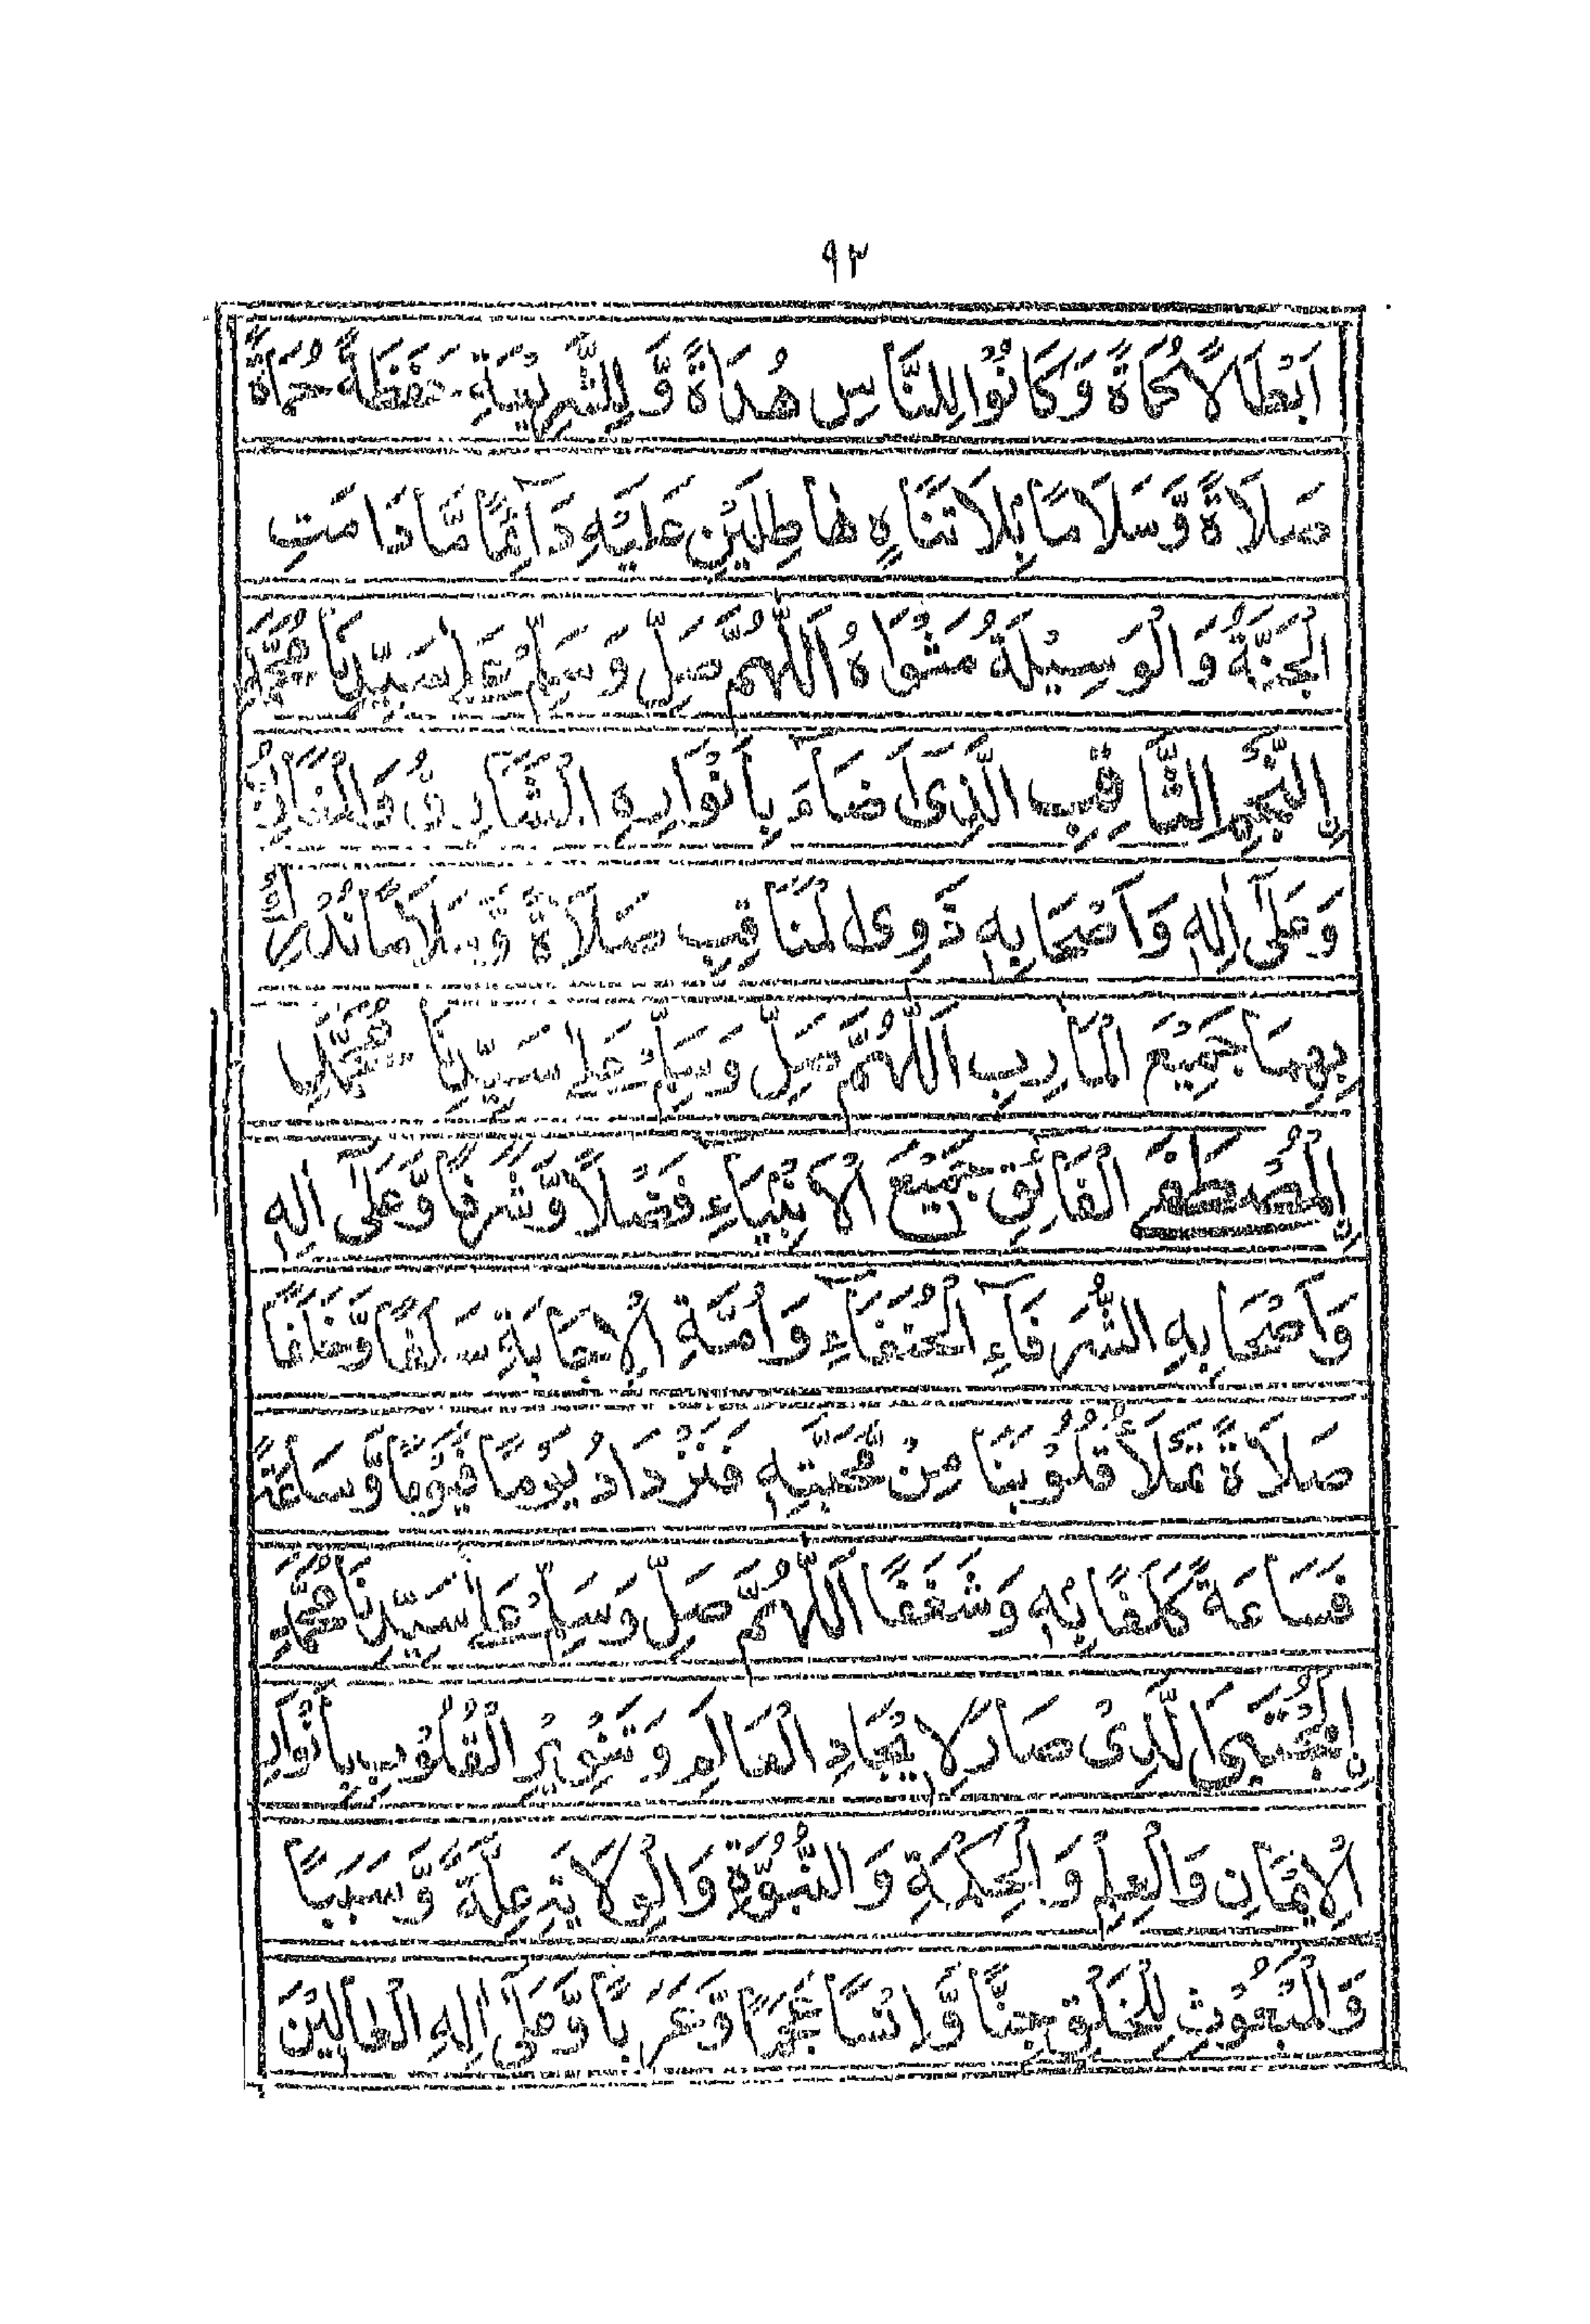 ٩٢
اَبْطَالًا كُمَاةً وَكَانُوْا لِلنَّاسِ هُدَاةً وَّلِلشَّرِيْعَةِ حَفَظَةً حُمَاةً
صَلَاةً وَّسَلَامًا بِلَا تَنَاهٍ هَاطِلَيْنِ عَلَيْهِ دَآئِمًا مَّا دَامَتِ
الْجَنَّةُ وَالْوَسِيْلَةُ مَثْوَاهُ اَللّٰهُمَّ صَلِّ وَسَلِّمْ عَلٰى سَيِّدِنَا مُحَمَّدِ
نِالنَّجْمِ الثَّاقِبِ الَّذِىْ اَضَآءَ بِاَنْوَارِهِ الْمَشَارِقُ وَالْمَغَارِبُ
وَعَلٰٓى اٰلِهٖ وَاَصْحَابِهٖ ذَوِى الْمَنَاقِبِ صَلَاةً وَّسَلَامًا نُدْرِكُ
بِهِمَا جَمِيْعَ الْمَاٰرِبِ اَللّٰهُمَّ صَلِّ وَسَلِّمْ عَلٰى سَيِّدِنَا مُحَمَّدِ
نِالْمُصْطَفٰى الْفَآئِقِ جَمِيْعَ الْاَنْبِيَاءِ فَضْلًا وَّشَرَفًا وَّعَلٰٓى اٰلِهٖ
وَاَصْحَابِهِ الشُّرَفَآءِ الْحُنَفَآءِ وَاُمَّةِ الْاِجَابَةِ سَلَفًا وَّخَلَفًا
صَلَاةً تَمْلَأُ قُلُوْبَنَا مِنْ مَّحَبَّتِهٖ فَنَزْدَادُ يَوْمًا فَيَوْمًا وَّسَاعَةً
فَسَاعَةً كَلَفًا بِهٖ وَشَغَفًا اَللّٰهُمَّ صَلِّ وَسَلِّمْ عَلٰى سَيِّدِنَا مُحَمَّدِ
نِالْمُجْتَبَى الَّذِىْ صَارَ لِاِيْجَادِ الْعَالَمِ وَتَنْوِيْرِ الْقُلُوْبِ بِاَنْوَارِ
الْاِيْمَانِ وَالْعِلْمِ وَالْحِكْمَةِ وَالنُّبُوَّةِ وَالْوِلَايَةِ عِلَّةً وَّسَبَبًا
وَالْمَبْعُوْثِ لِلْخَلْقِ جِنًّا وَّاِنْسًا عَجَمًا وَّعَرَبًا وَّعَلٰٓى اٰلِهِ الْمَالِيْنَ